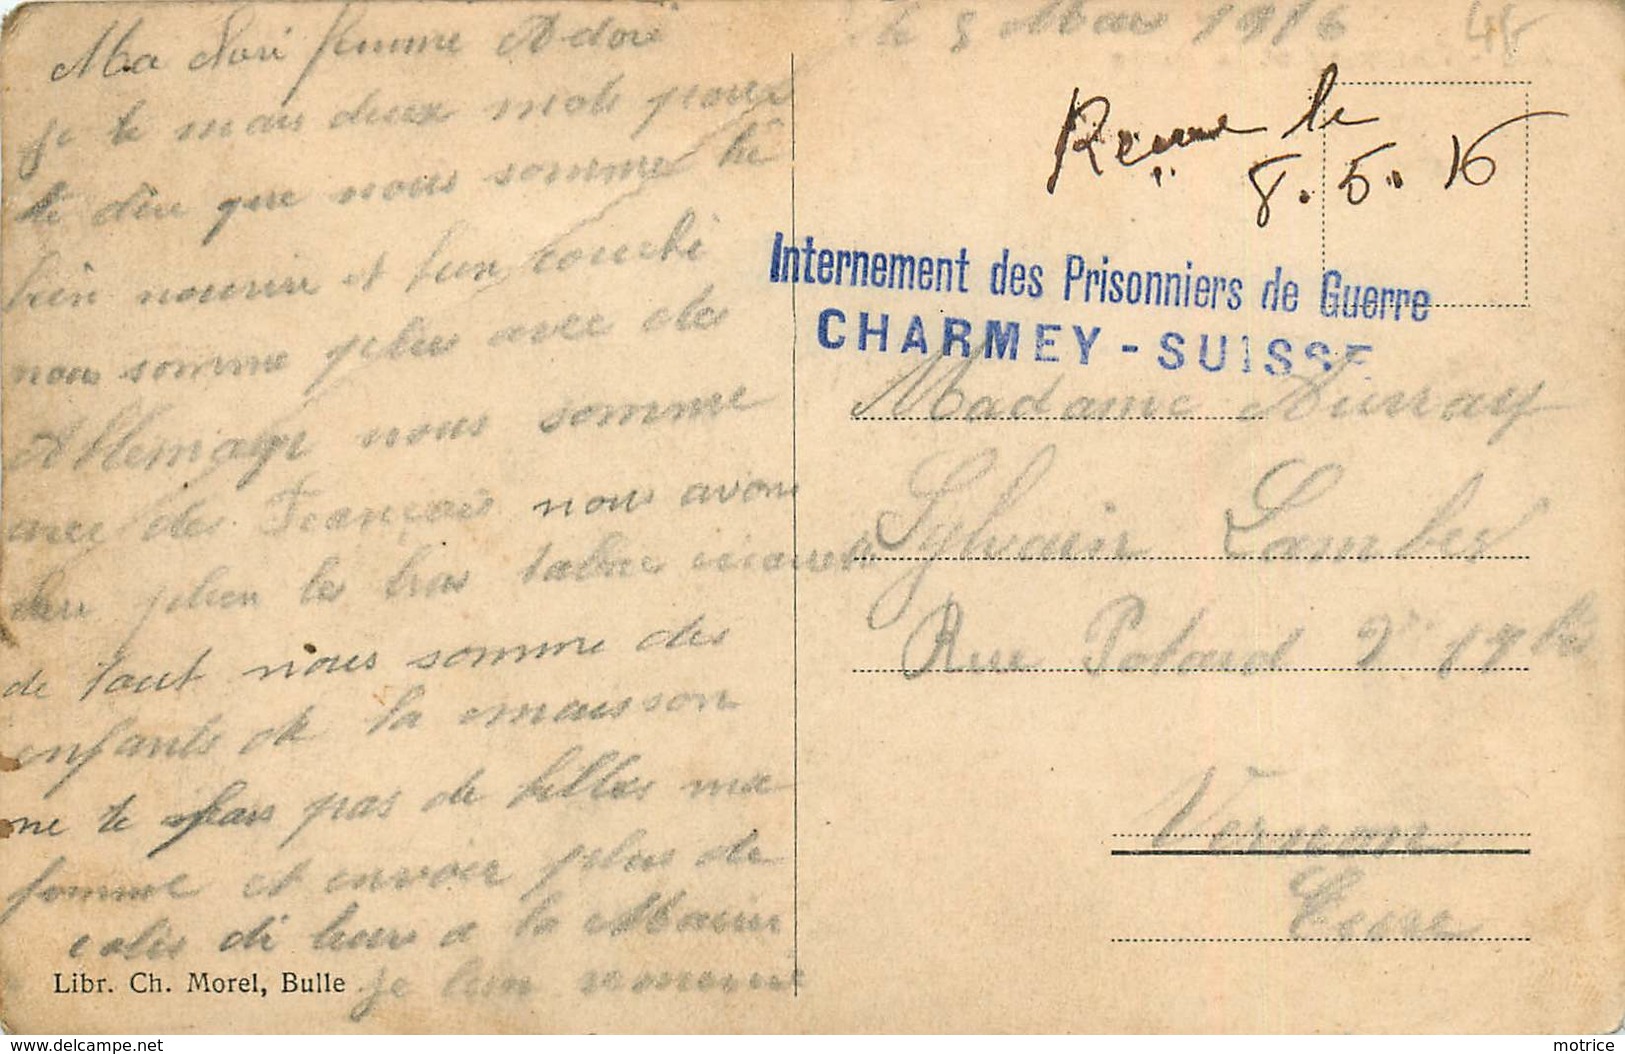 le 5 Mai 1916
45
Ma  femme Adoré
je te mais deux mots pour
te dire que nous somme tré
bien nourire et bien couché
nous somme plus avec des
Allemage nous somme
avec des Français nous avons
 plien les bras tabac 
de tout nous somme des
enfants de la maisson
ne te fais pas de billes ma
femme et envoier plus de
colis di leur a la Mairir
je leur 
Reçue le
8.5.16
Internement des Prisonniers de Guerre
CHARMEY - SUISSE
Madame Aurray
Sylvain Lamber
Rue Potard 19 bis
Vernon
Eure
Libr. Ch. Morel, Bulle
www.delcampe.net
motrice